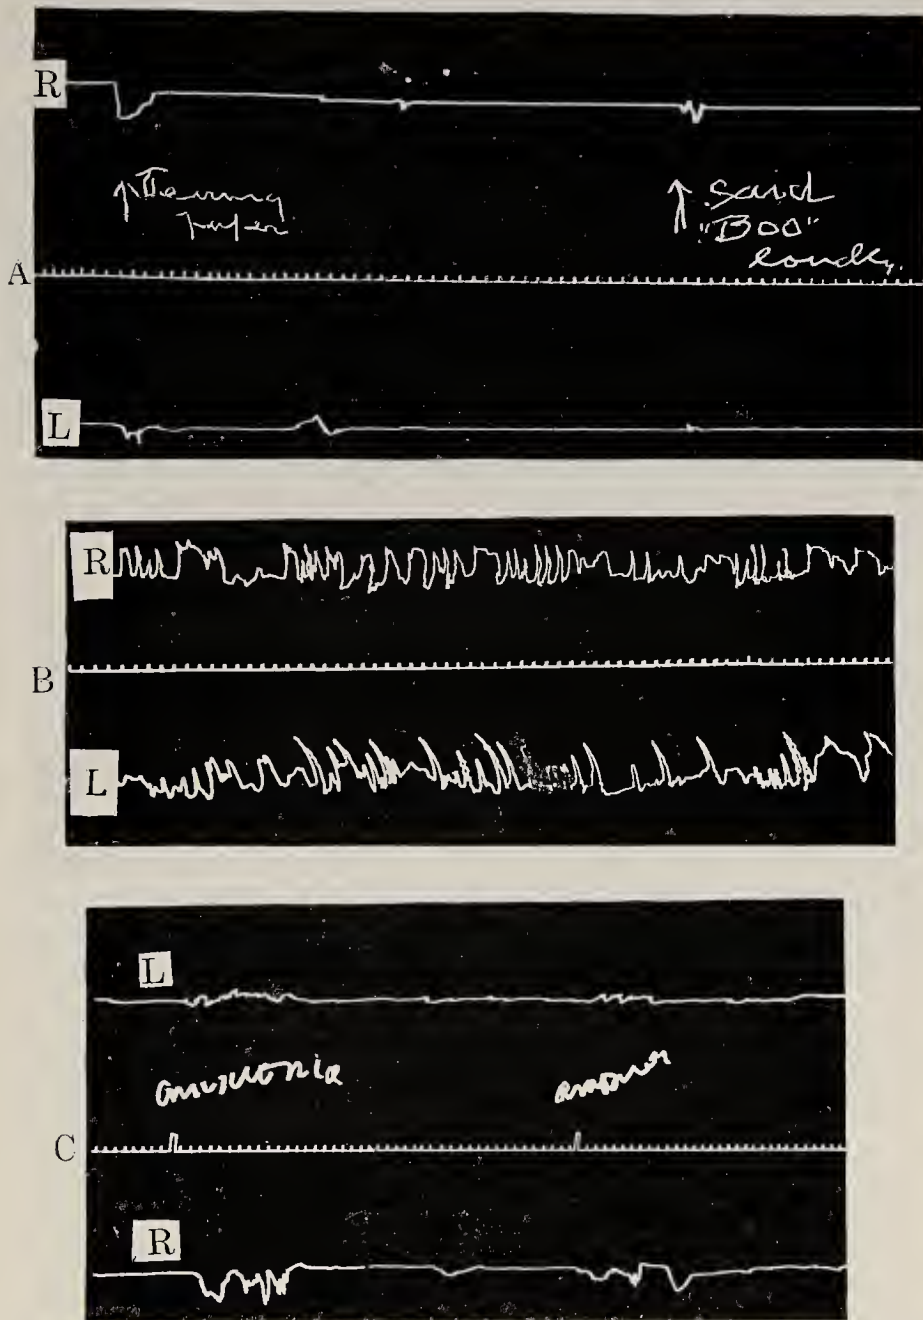 R
↑ Tearing
paper
↑ said
"Boo"
loudly.
A
L
R
B
L
L
ammonia
C
R